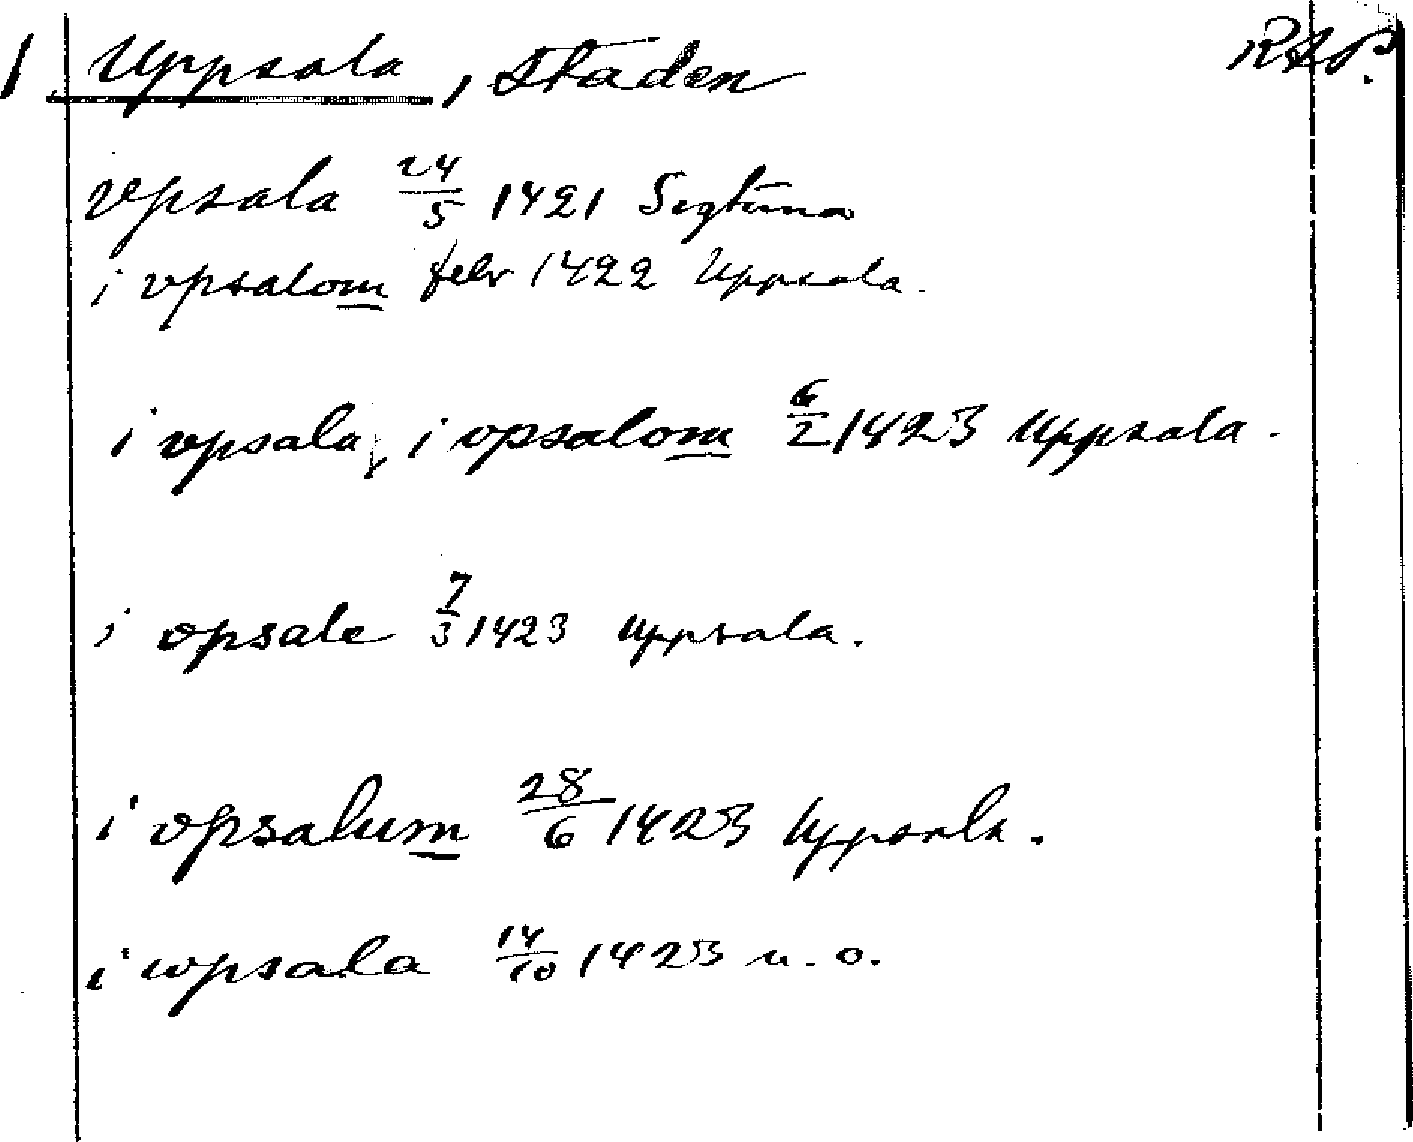 1 Uppsala, staden RAP.
vpsala 24/5 1421 Sigtuna
i vpsalom febr 1422 Uppsala.
i vpsala, i opsalom 6/2 1423 Uppsala.
i opsale 7/3 1423 Uppsala.
i vpsalum 28/6 1423 Uppsala.
i wpsala 14/10 1423 u. o.